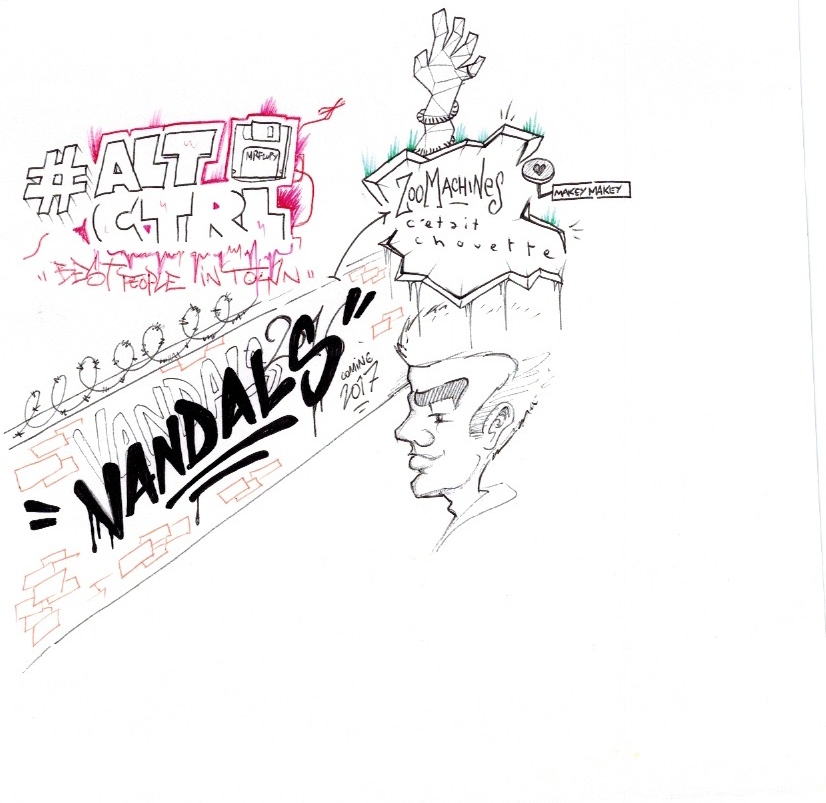 #ALT
CTRL
"BEST PEOPLE IN TOWN"
ZOOMACHINES
c'était
chouette
MAKEY MAKEY
VANDALS
"VANDALS"
COMING
2017